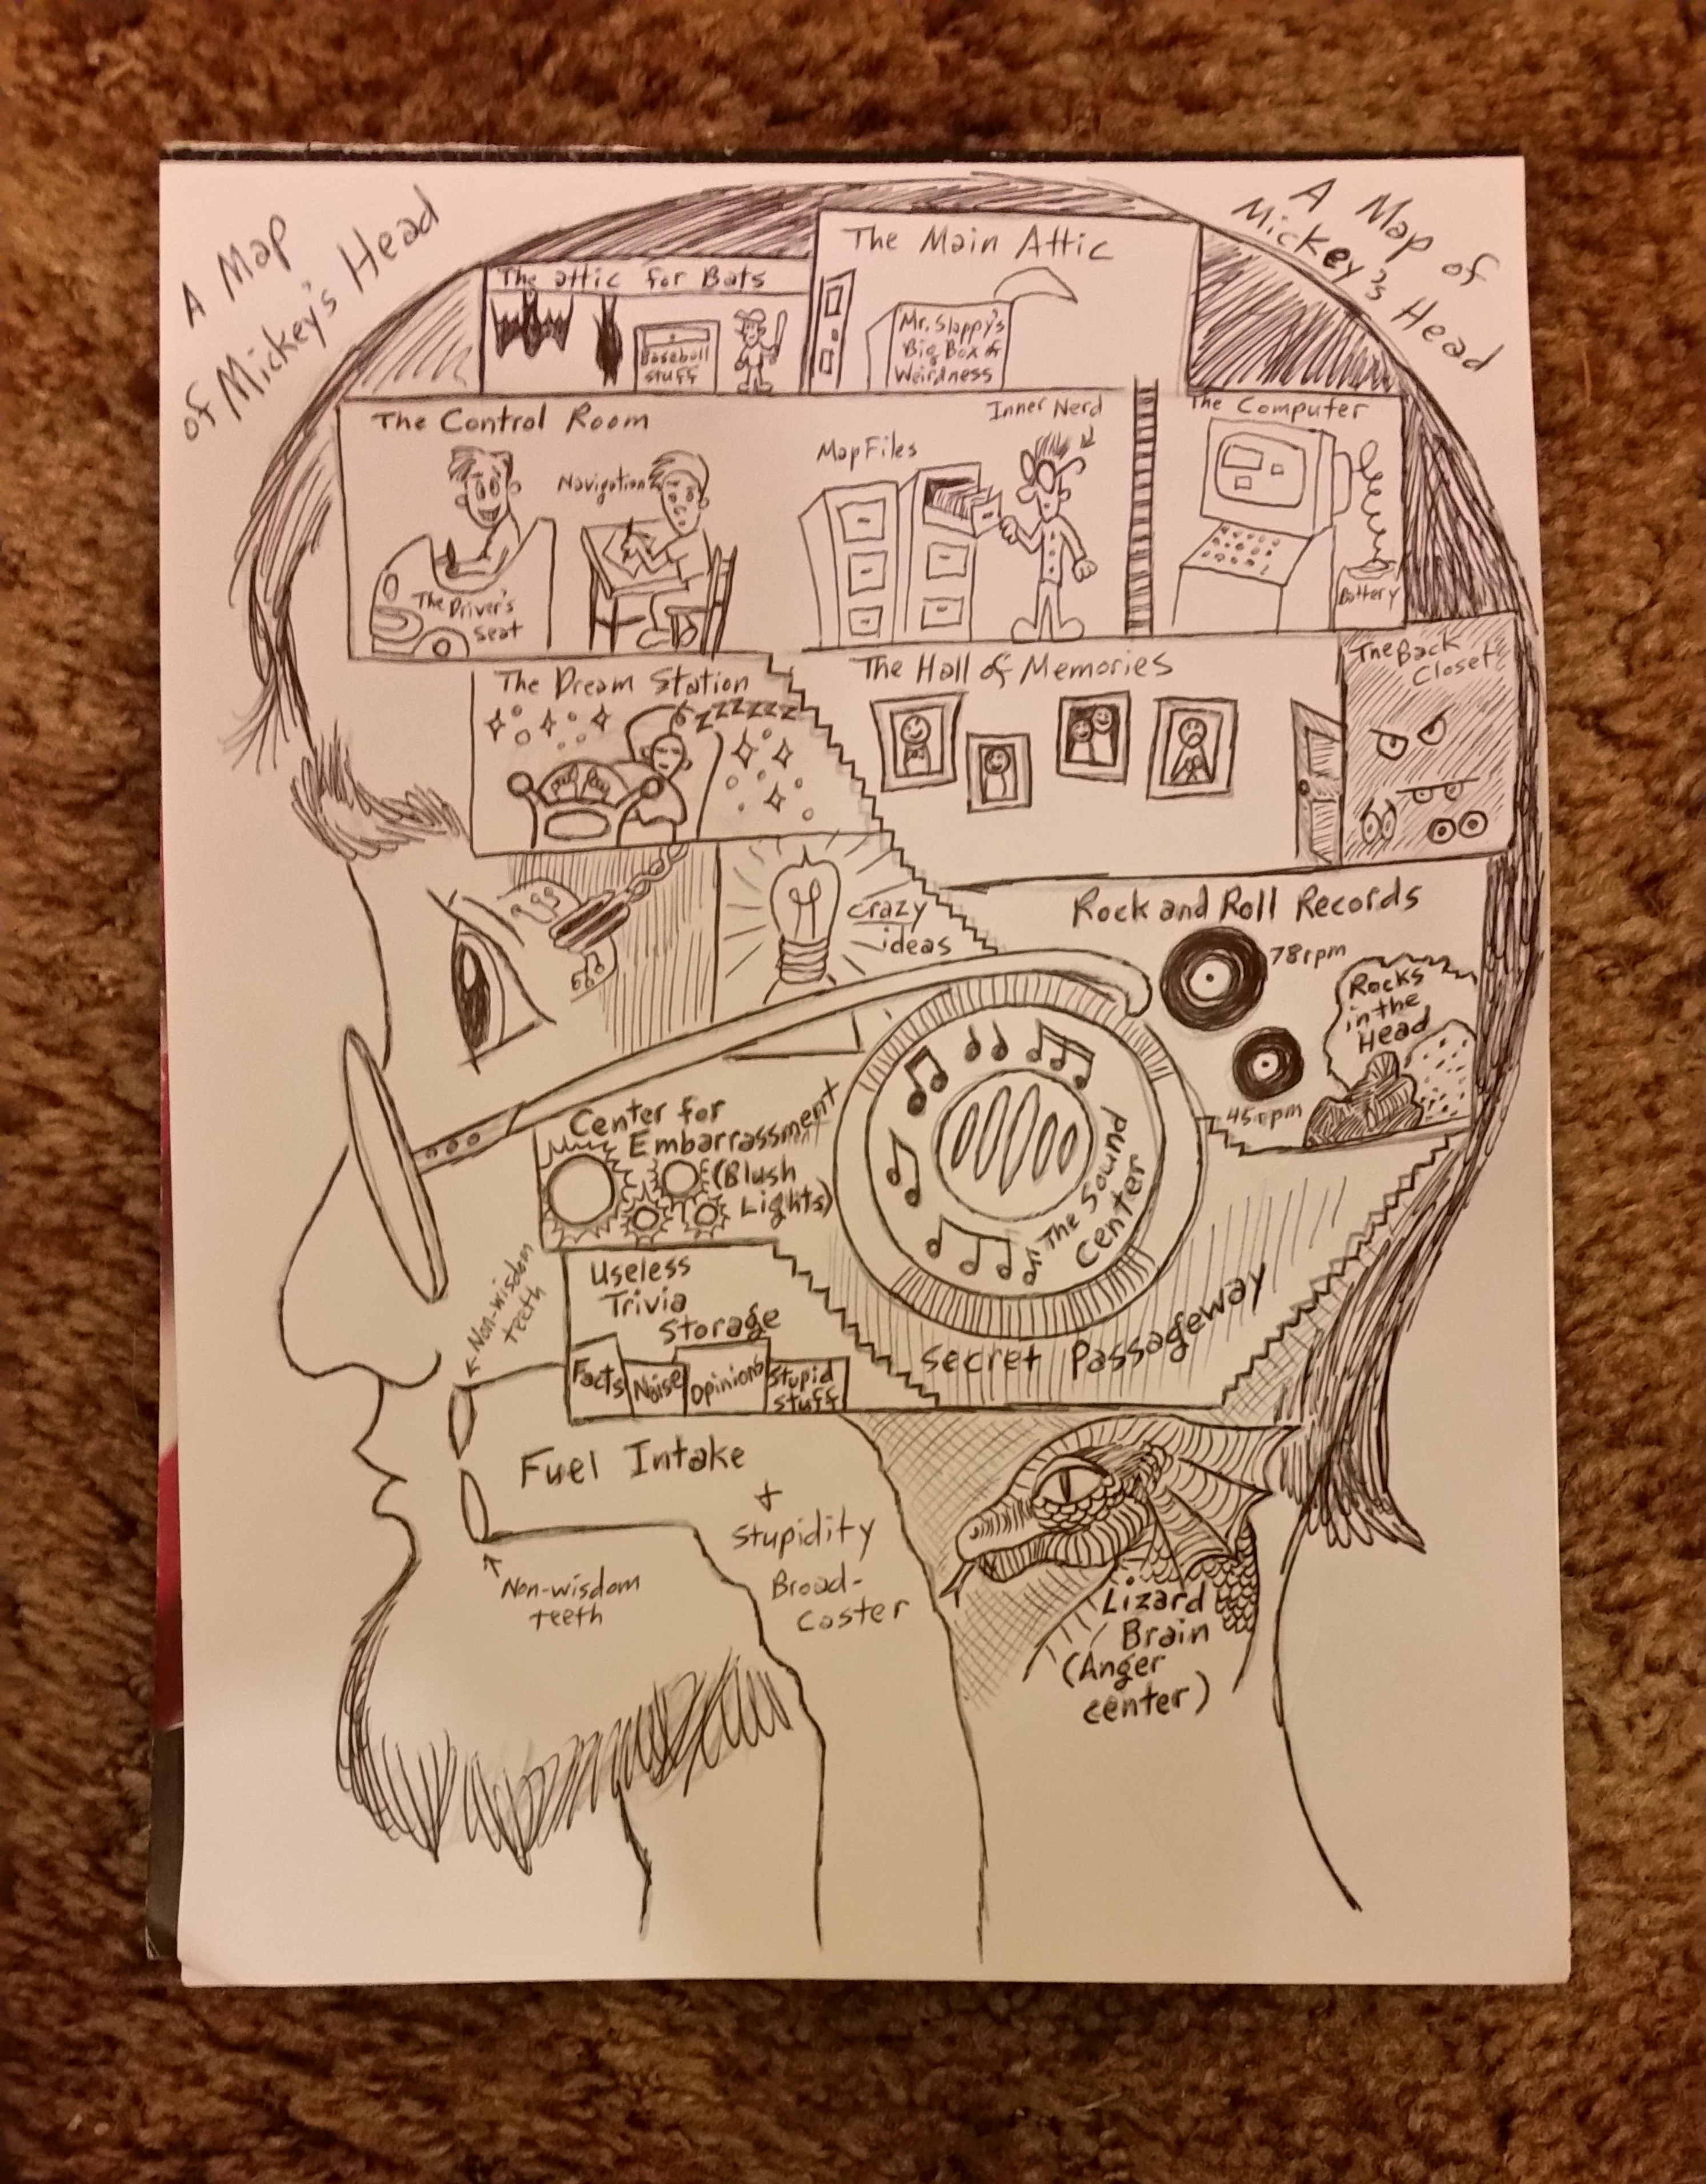 A Map
of Mickey's Head
A Map of
Mickey's Head
The attic for Bats
Baseball
stuff
The Main Attic
Mr. Slappy's
Big Box of
Weirdness
The Control Room
The Driver's
seat
Navigation
Map Files
Inner Nerd
The Computer
Battery
The Dream Station
zzzzzzz
The Hall of Memories
The Back
Closet
crazy
ideas
Rock and Roll Records
78rpm
45rpm
Rocks
in the
Head
Center for
Embarrassment
(Blush
Lights)
The Sound
Center
Non-wisdom
teeth
Useless
Trivia
Storage
Facts
Noise
Opinions
Stupid
stuff
Secret Passageway
Fuel Intake
+
Stupidity
Broad-
caster
Non-wisdom
teeth
Lizard
Brain
(Anger
center)